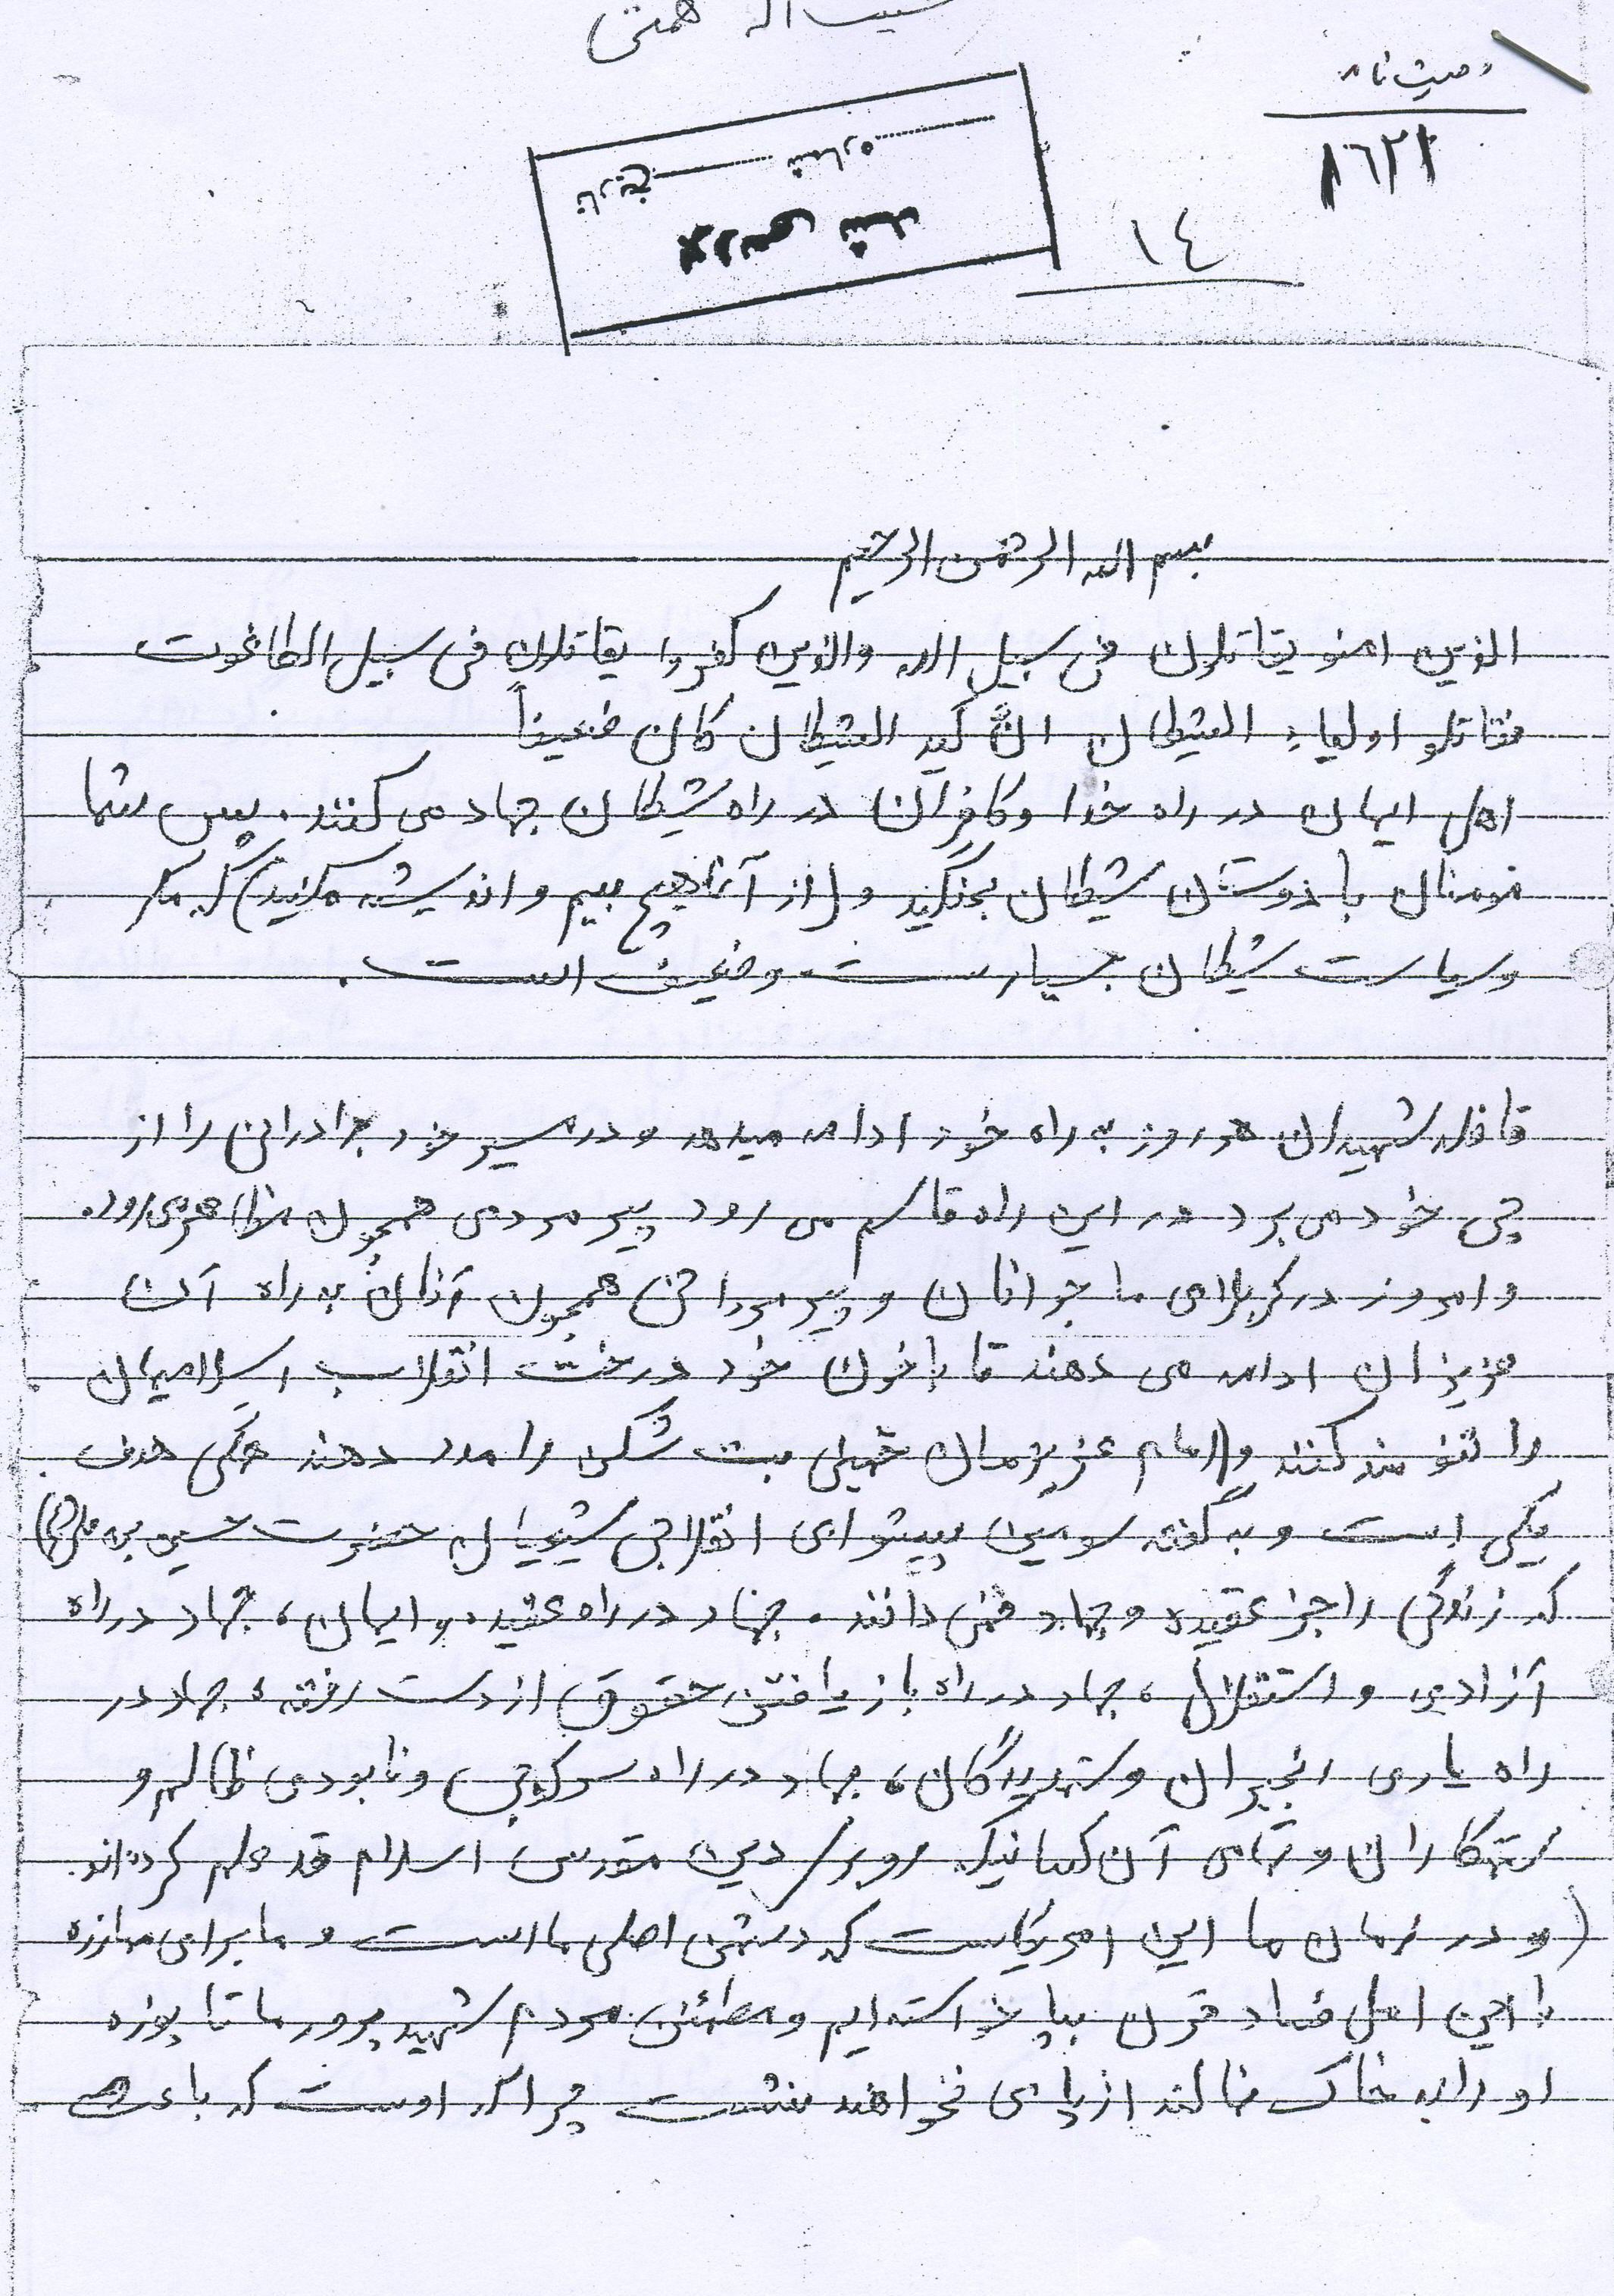 همتی
وصیت نامه
۸۶۲۱
۱٤
شماره
تاریخ
بررسی شد
بسم الله الرحمن الرحیم
الذین امنو یقاتلون فی سبیل الله والذین کفروا یقاتلون فی سبیل الطاغوت
فقاتلو اولیاء الشیطان انَّ کید الشیطان کان ضعیفاً
اهل ایمان در راه خدا و کافران در راه شیطان جهاد می کنند. پس شما
مومنان با دوستان شیطان بجنگید و (از آنها هیچ بیم و اندیشه مکنید) که مکر
و سیاست شیطان بسیار سست و ضعیف است.
قافله شهیدان هر روز به راه خود ادامه میدهد و در مسیر خود برادرانی را از
پی خود می برد در این راه قاسم می رود پیرمردمی همچون مظاهر می رود.
و امروز در کربلای ما جوانان و پیرمردانی همچون آنان به راه آن
عزیزان ادامه می دهند تا باخون خود درخت انقلاب اسلامیمان
را تنومند کنند و امام عزیزمان خمینی بت شکن را مدد دهند همگی هدف
یکی است و به گفته سومین پیشوای انقلابی شیعیان حضرت حسین بن علی (ع)
که زندگی را جز عقیده و جهاد نمی دانند. جهاد در راه عقیده و ایمان، جهاد در راه
آزادی و استقلال، جهاد در راه باز یافتن حقوق از دست رفته، جهاد در
راه یاری رنجبران و ستمدیدگان، جهاد در راه سرکوبی و نابودی ظالم و
ستمکاران و تمامی آن کسانیکه روبروی دین مقدس اسلام قد علم کرده اند.
(و در زمان ما این امریکاست که دشمن اصلی ما است و ما برای مبارزه
با این اصل فساد قرن بپا خواسته ایم و مطمئن مردم شهید پرور ما تا پوزه
او را به خاک نمالند از پای نخواهند نشست چرا که اوست که باعث